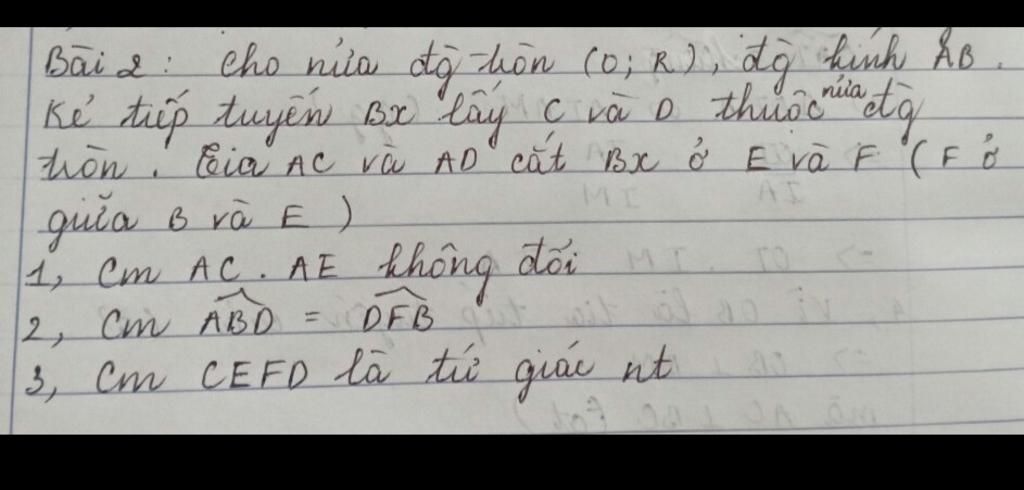 Bài 2: Cho nửa đg tròn (O; R), đg kính AB.
Kẻ tiếp tuyến Bx lấy C và D thuộc nửa đg
tròn. Tia AC và AD cắt Bx ở E và F (F ở
giữa B và E)
1, Cm AC. AE không đổi
2, Cm ABD = DFB
3, Cm CEFD là tứ giác nt